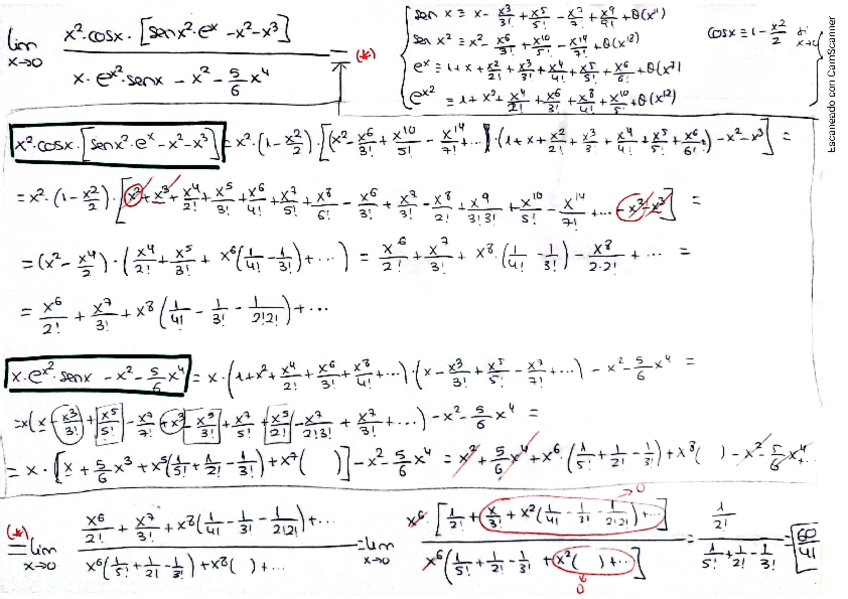 lim x→0 x²·cosx·[senx²·eˣ-x²-x³] / x·e^x²·senx-x²-5/6x⁴ = (*)
sen x ≡ x-x³/3!+x⁵/5!-x⁷/7!+x⁹/9!+θ(x¹¹)
sen x² ≡ x²-x⁶/3!+x¹⁰/5!-x¹⁴/7!+θ(x¹⁸)
eˣ ≡ 1+x+x²/2!+x³/3!+x⁴/4!+x⁵/5!+x⁶/6!+θ(x⁷)
e^x² ≡ 1+x²+x⁴/2!+x⁶/3!+x⁸/4!+x¹⁰/5!+θ(x¹²)
cosx ≡ 1-x²/2 si x→0
Escaneado con CamScanner
x²·cosx·[senx²·eˣ-x²-x³] = x²·(1-x²/2)·[(x²-x⁶/3!+x¹⁰/5!-x¹⁴/7!+...)·(1+x+x²/2!+x³/3!+x⁴/4!+x⁵/5!+x⁶/6!)-x²-x³] =
= x²·(1-x²/2)·[x²+x³+x⁴/2!+x⁵/3!+x⁶/4!+x⁷/5!+x⁸/6!-x⁶/3!+x⁷/3!-x⁸/2!+x⁹/3!3!+x¹⁰/5!-x¹⁴/7!+...-x²-x³] =
= (x²-x⁴/2)·(x⁴/2!+x⁵/3!+x⁶(1/4!-1/3!)+...) = x⁶/2!+x⁷/3!+x⁸·(1/4!-1/3!)-x⁸/2·2!+... =
= x⁶/2!+x⁷/3!+x⁸(1/4!-1/3!-1/2!2!)+...
x·e^x²·senx-x²-5/6x⁴ = x·(1+x²+x⁴/2!+x⁶/3!+x⁸/4!+...)·(x-x³/3!+x⁵/5!-x⁷/7!+...)-x²-5/6x⁴ =
=x(x-x³/3!+x⁵/5!-x⁷/7!+x³-x⁵/3!+x⁷/5!+x⁵/2!-x⁷/2!3!+x⁷/3!+...)-x²-5/6x⁴ =
= x·[x+5/6x³+x⁵(1/5!+1/2!-1/3!)+x⁷( )]-x²-5/6x⁴ = x²+5/6x⁴+x⁶·(1/5!+1/2!-1/3!)+x⁸( )-x²-5/6x⁴
(*) = lim x→0 x⁶/2!+x⁷/3!+x⁸(1/4!-1/3!-1/2!2!)+... / x⁶(1/5!+1/2!-1/3!)+x⁸( )+... = lim x→0 x⁶[1/2!+x/3!+x²(1/4!-1/3!-1/2!2!)+...] / x⁶(1/5!+1/2!-1/3!+x²( )+...] = 1/2! / 1/5!+1/2!-1/3! = 60/41
0
0